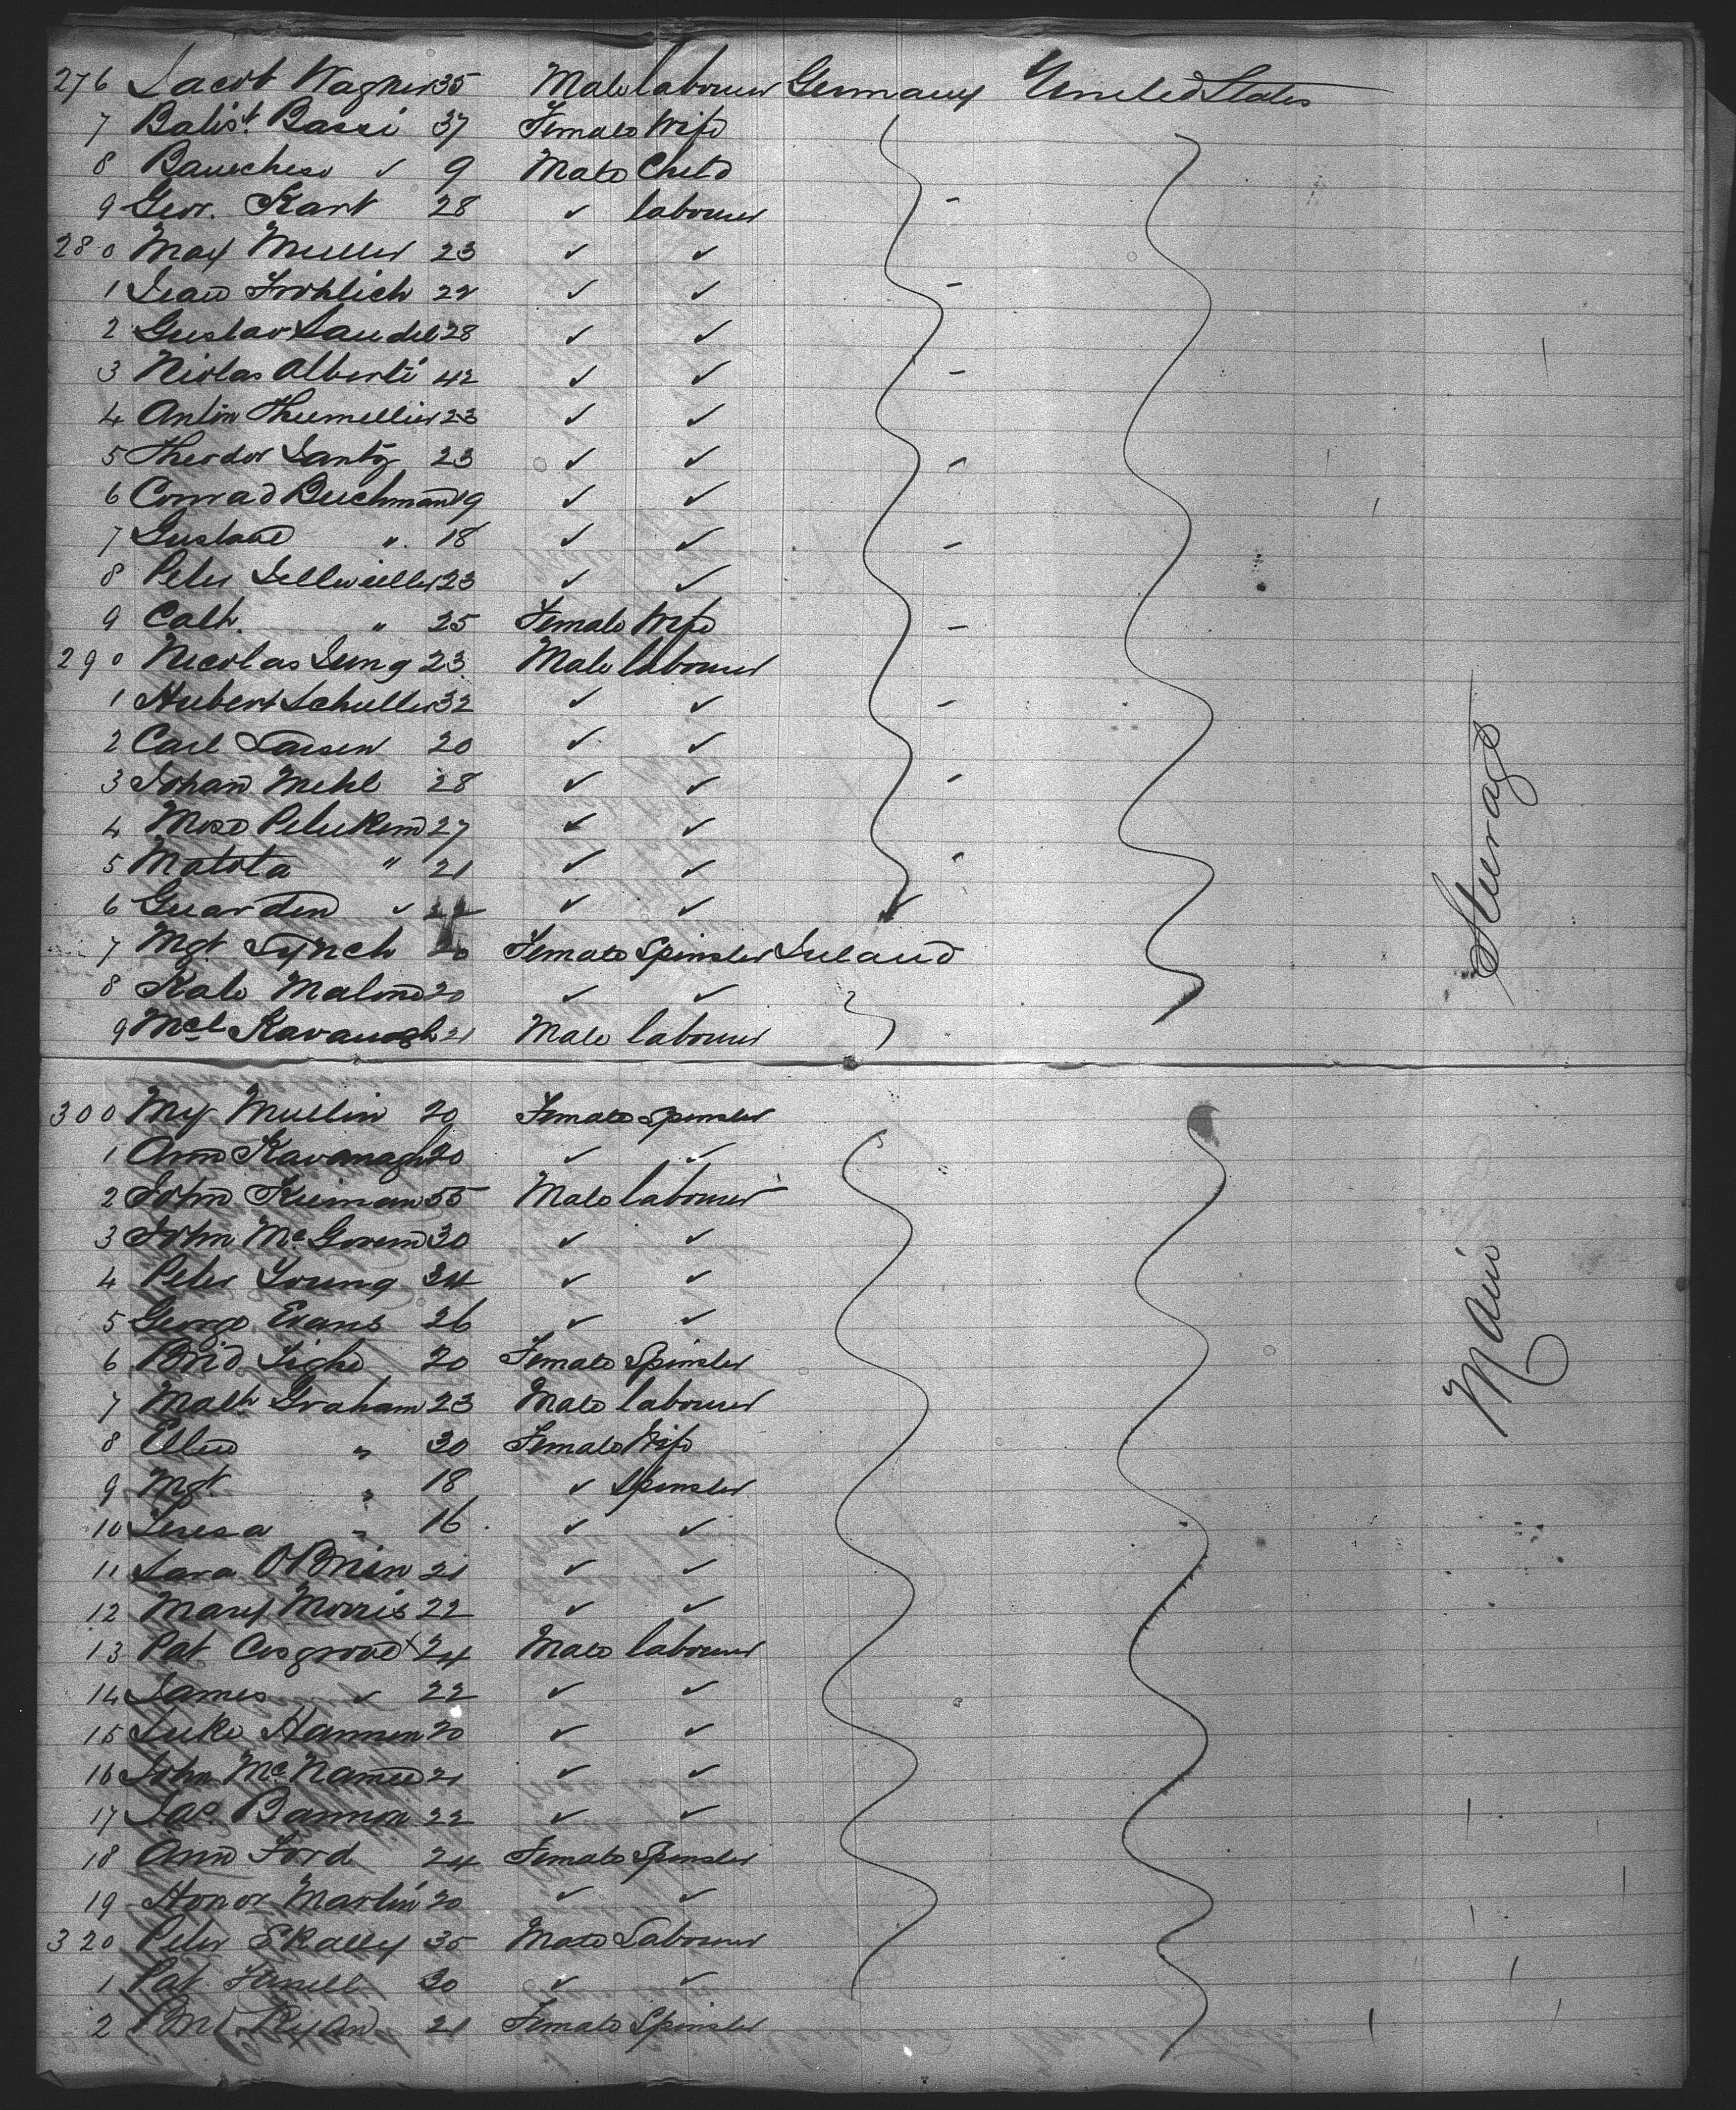 276 Jacob Wagner 35 Male labourer Germany United States
7 Balist. Bassi 37 Female Wife
8 ✓ 9 Male Child
9 Geor. Kart 28 ✓ labourer
280 Max Muller 23 ✓ ✓
1 Jean Frohlich 22 ✓ ✓
2 Gustav Laudel 28 ✓ ✓
3 Niolas Alberti 42 ✓ ✓
4 Anton 23 ✓ ✓
5 Theodor Lantz 23 ✓ ✓
6 Conrad Buchman 19 ✓ ✓
7 Gustave " 18 ✓ ✓
8 Peter 23 ✓ ✓
9 Cath. " 25 Female Wife
290 Nicolas Jung 23 Male labourer
1 Hubert Schuller 32 ✓ ✓
2 Carl Larsen 20 ✓ ✓
3 Johan Mehl 28 ✓ ✓
4 27 ✓ ✓
5 Matota " 21 ✓ ✓
6 Guarden ✓ ✓ ✓ ✓
7 Mgt. Lynch 20 Female Spinster Ireland
8 Kate Malone 20 ✓ ✓
9 Mcl Kavanagh 21 Male labourer
Steerage
300 My Mullin 20 Female Spinster
1 Ann Kavanagh 20 ✓ ✓
2 John Kiernan 55 Male labourer
3 John McGovern 30 ✓ ✓
4 Peter Young 34 ✓ ✓
5 George Evans 26 ✓ ✓
6 Brid Tighe 20 Female Spinster
7 Math Graham 23 Male labourer
8 Ellen " 30 Female Wife
9 Mgt. " 18 ✓ Spinster
10 Teresa " 16 ✓ ✓
11 Sara O'Brien 21 ✓ ✓
12 Mary Morris 22 ✓ ✓
13 Pat Cosgrove 24 Male labourer
14 James ✓ 22 ✓ ✓
15 Luke Hannon 20 ✓ ✓
16 John McNamee 21 ✓ ✓
17 Jas. Bannon 22 ✓ ✓
18 Ann Ford 24 Female Spinster
19 Honor Martin 20 ✓ ✓
320 Peter Skally 35 Male Labourer
1 Pat Farrell 30 ✓ ✓
2 Brid Ryan 21 Female Spinster
Main